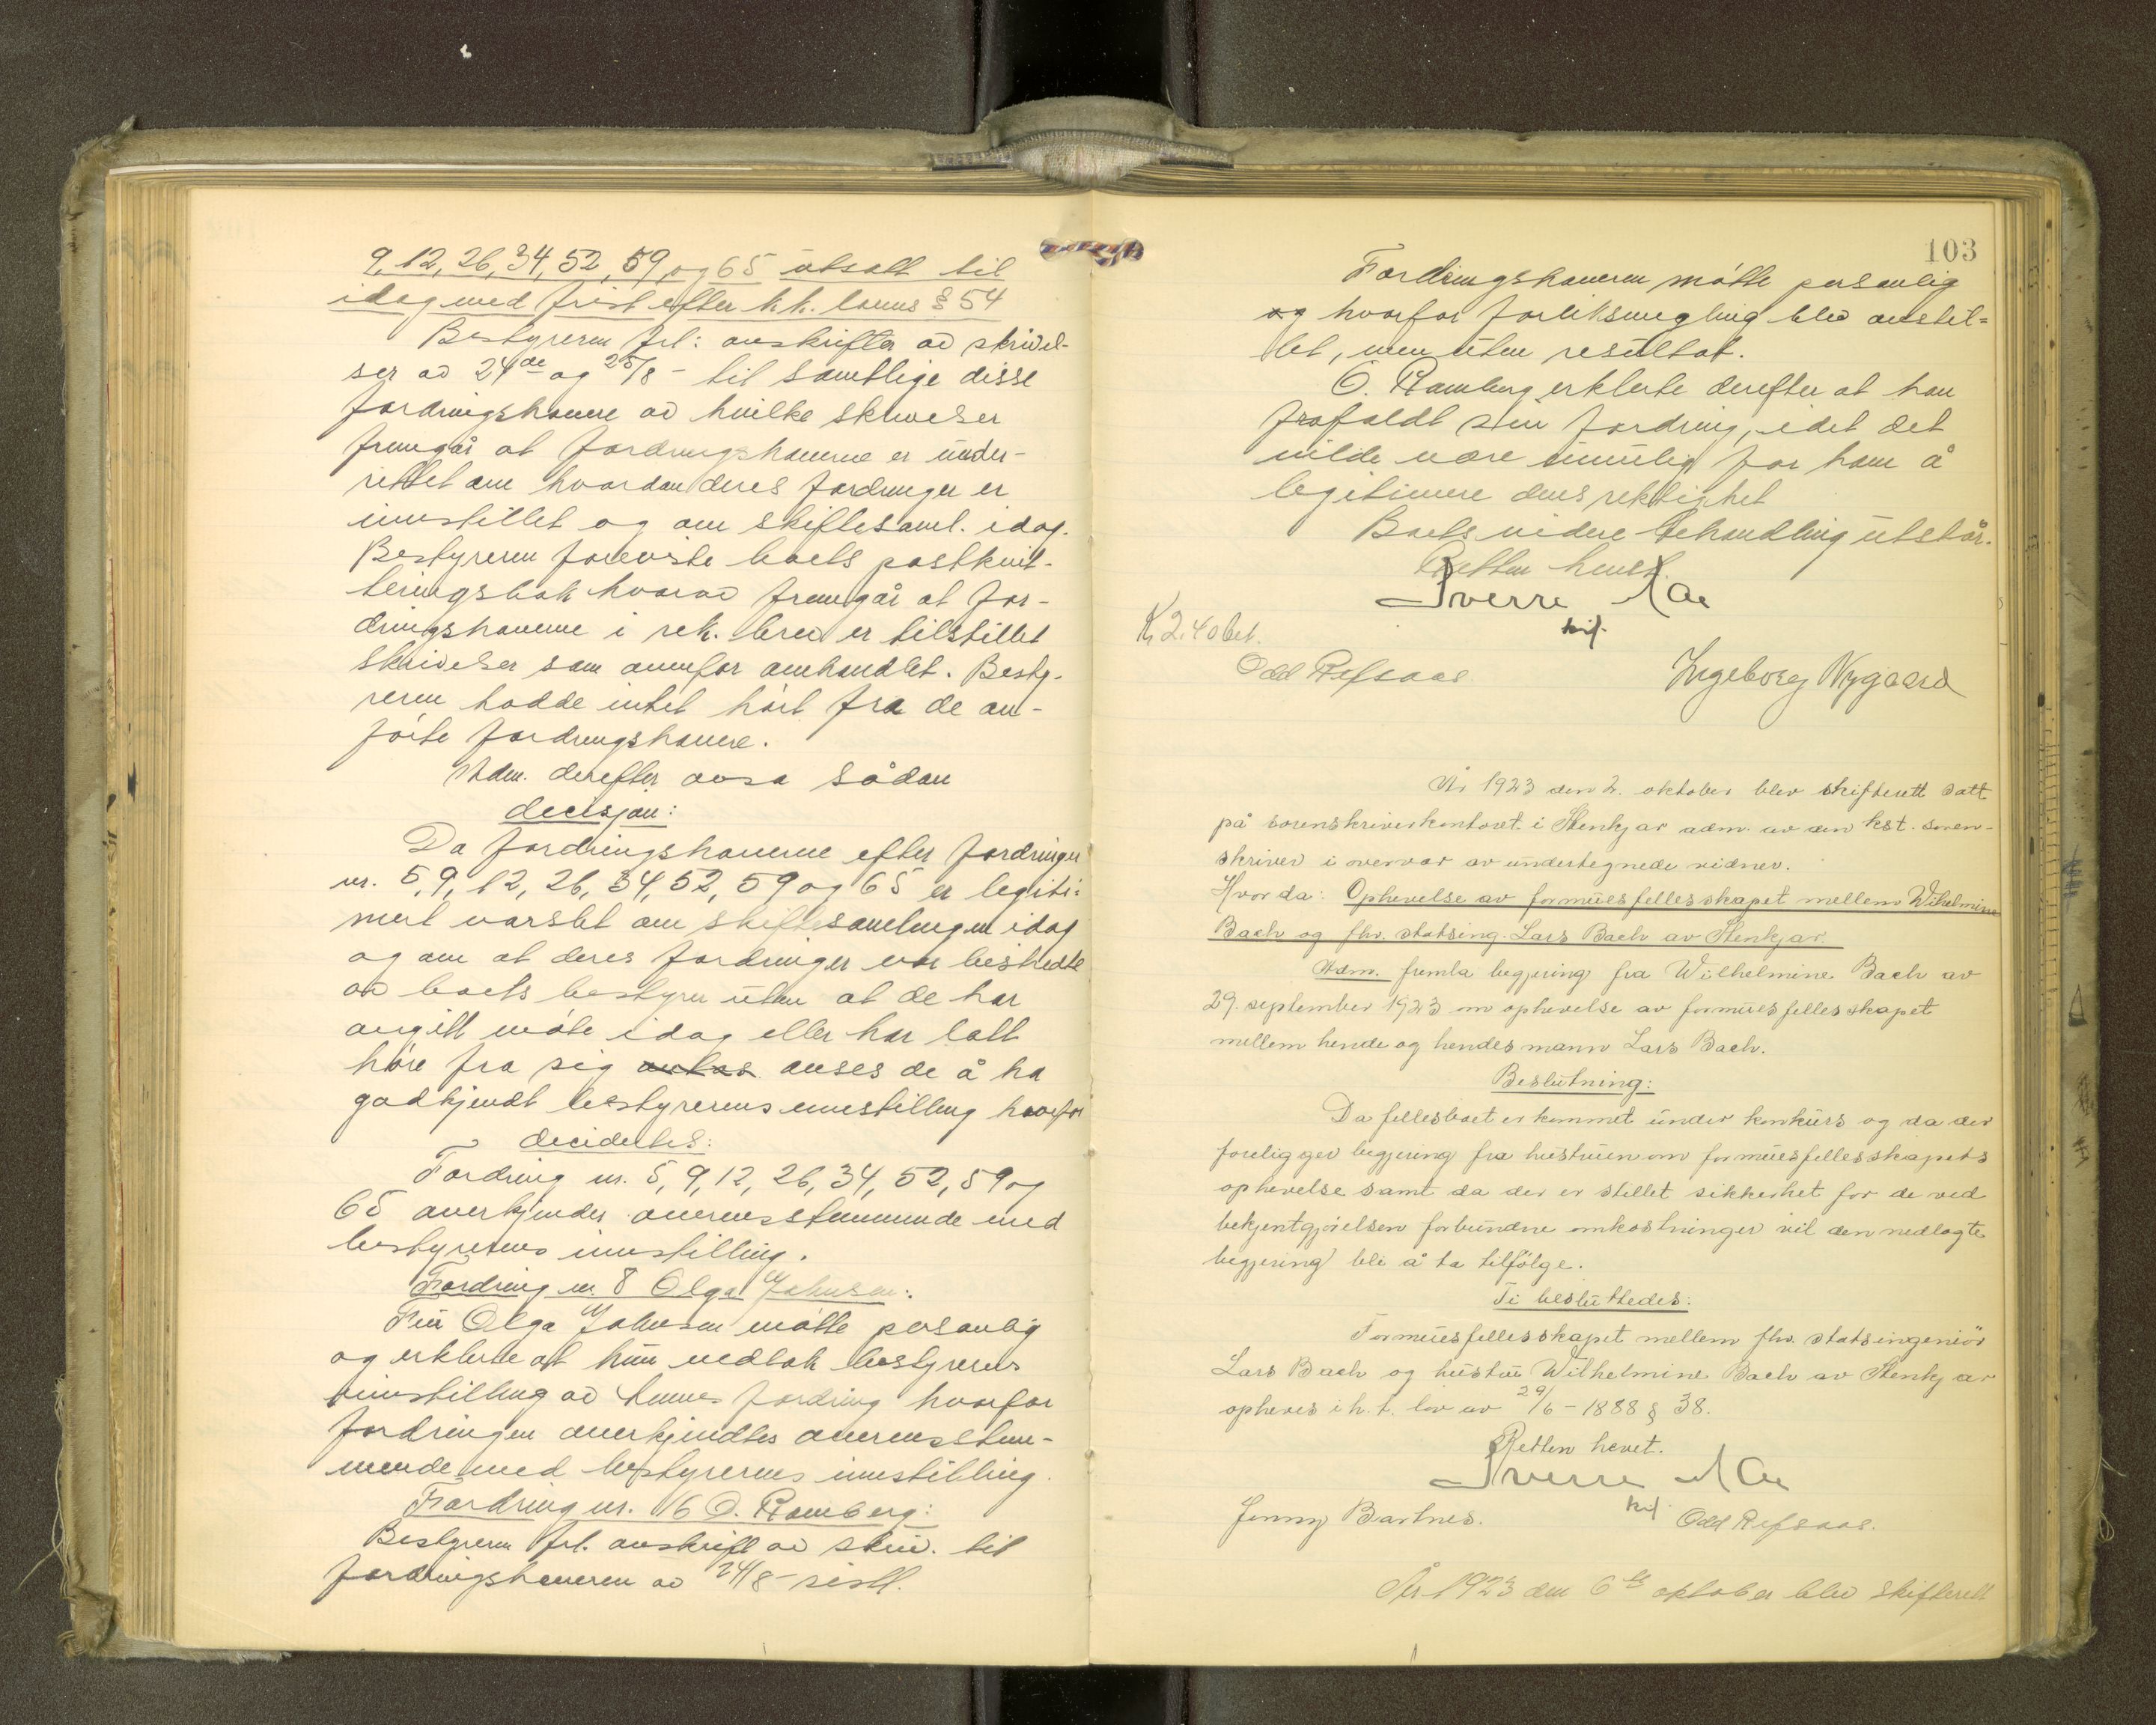 9, 12, 26, 34, 52, 59, og 65 utsatt til
idag med frist efter kk. lovens § 54
Bestyreren frl: avskrifter av skrivel-
ser av 24de og 25/8 - til samtlige disse
fordringshavere av hvilke skrivelser
fremgår at fordringshaverne er under-
rettet om hvordan deres fordringer er
innstillet og om skiftesaml. idag.
Bestyreren foreviste boets postkvit-
teringsbok hvorav fremgår at for-
dringshaverne i rek. brev er tilstillet
skrivelser som ovenfor omhandlet. Besty-
reren hadde intet hört fra de an-
förte fordringshavere.
Adm. derefter avsa sådan
decisjon:
Da fordringshaverne efter fordringer
nr. 5, 9, 12, 26, 34, 52, 59 og 65 er legiti-
mert varslet om skiftesamlingen idag
og om at deres fordringer var bestridte
av boets bestyrer uten at de har
avgitt möte idag eller har latt
höre fra sig anses de å ha
godkjendt bestyrerens innstilling hvorfor
decidertes:
Fordring nr. 5, 9, 12, 26, 34, 52, 59 og
65 anerkjendes overensstemmende med
bestyrerens innstilling.
Fordring nr. 8 Olga Johnsen:
Fru Olga Johnsen mötte personlig
og erklerte at hun vedtok bestyrerens
innstilling av hennes fordring hvorfor
fordringen anerkjendtes overensstem-
mende med bestyrerens innstilling.
Fordring nr. 16 O. Ramberg:
Bestyreren frl. avskrift av skriv. til
fordringshaveren av 24/8 - sistl.
103
Fordringshaveren mötte personlig
og hvorfor forliksmegling blev anstil-
let, men uten resultat.
O. Ramberg erklerte derefter at han
frafaldt sin fordring, idet det
vilde være umulig for ham å
legitimere dens riktighet
Boets videre behandling utstår.
Retten hevet.
Sverre Aa
kst.
Kr 2.40 bet.
Odd Refsaas
Ingeborg Nygaard
År 1923 den 2. oktober blev skifterett satt
på sorenskriverkontoret i Stenkjær adm. av den kst. soren-
skriver i overvær av undertegnede vidner.
Hvorda: Ophevelse av formuesfellesskapet mellem Wilhelmine
Bach og fhv. statsing. Lars Bach av Stenkjær.
Adm. fremla begjering fra Wilhelmine Bach av
29. september 1923 om ophevelse av formuesfellesskapet
mellem hende og hendes mann Lars Bach.
Beslutning:
Da fellesboet er kommet under konkurs og da der
foreligger begjering fra hustruen om formuesfellesskapets
ophevelse samt da der er stillet sikkerhet for de ved
bekjentgjörelsen forbundne omkostninger vil den nedlagte
begjering bli å ta tilfölge.
Ti besluttedes:
Formuesfellesskapet mellem fhv. statsingeniör
Lars Bach og hustru Wilhelmine Bach av Stenkjær
opheves i h. t. lov av 29/6 - 1888 § 38.
Retten hevet.
Sverre Aa
kst.
Jenny Bartnes.
Odd Refsaas.
År 1923 den 6te oktober blev skifterett